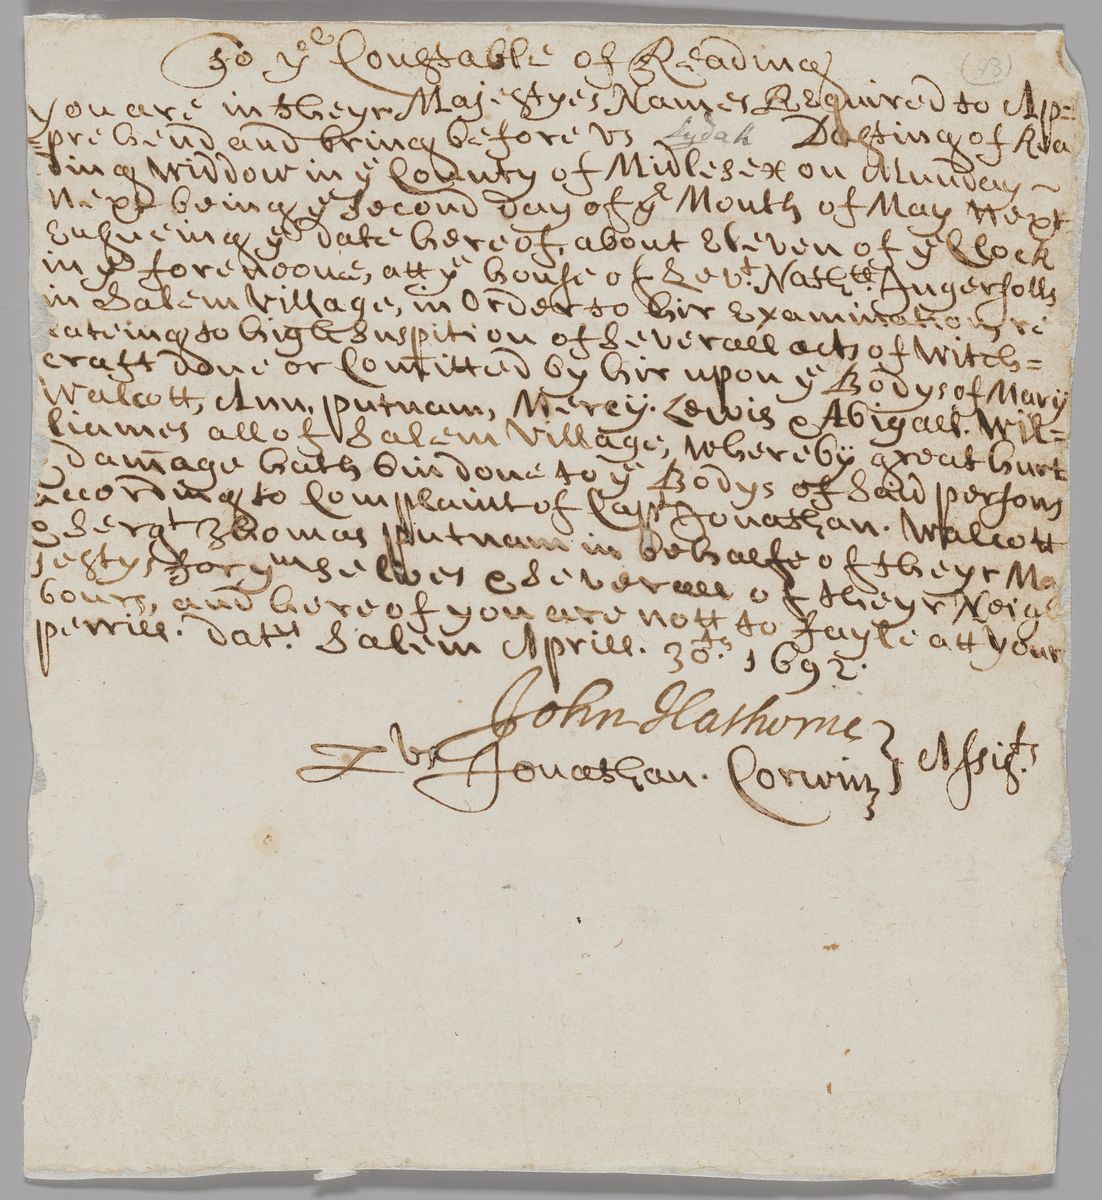 To yᵉ Constable of Reading
(78)
You are in theyr Majestyes Names Required to Ap=
=prehend and bring before us Lydah Dasting of Rea
ding Widdow in yᵉ County of Midlesex on Munday ~
Next being yᵉ second day of yᵉ Month of May Next
Ensueing yᵉ date hereof, about Eleven of yᵉ Clock
in yᵉ forenoone, att yᵉ house of Levᵗ. Nathˡˡ Ingersolls
in Salem Village, in Order to hir Examination, re
lateing to high Suspition of severall acts of Witch=
craft done or Comitted by hir upon yᵉ Bodys of Mary
Walcott, Ann. putnam, Mercy. Lewis & Abigall. Wil=
liames all of Salem Village, whereby great hurt
& damage hath bin done to yᵉ Bodys of said persons
according to Complaint of Capᵗ Jonathan. Walcott
& Sergᵗ Thomas putnam in behalfe of theyr Ma
jestys for yᵐselves & severall of theyr Neigh
bours, and hereof you are nott to fayle att your
perrill. datᵈ. Salem Aprill. 30ᵗʰ. 1692.
John Hathorne
Jonathan. Corwin } Assisᵗˢ